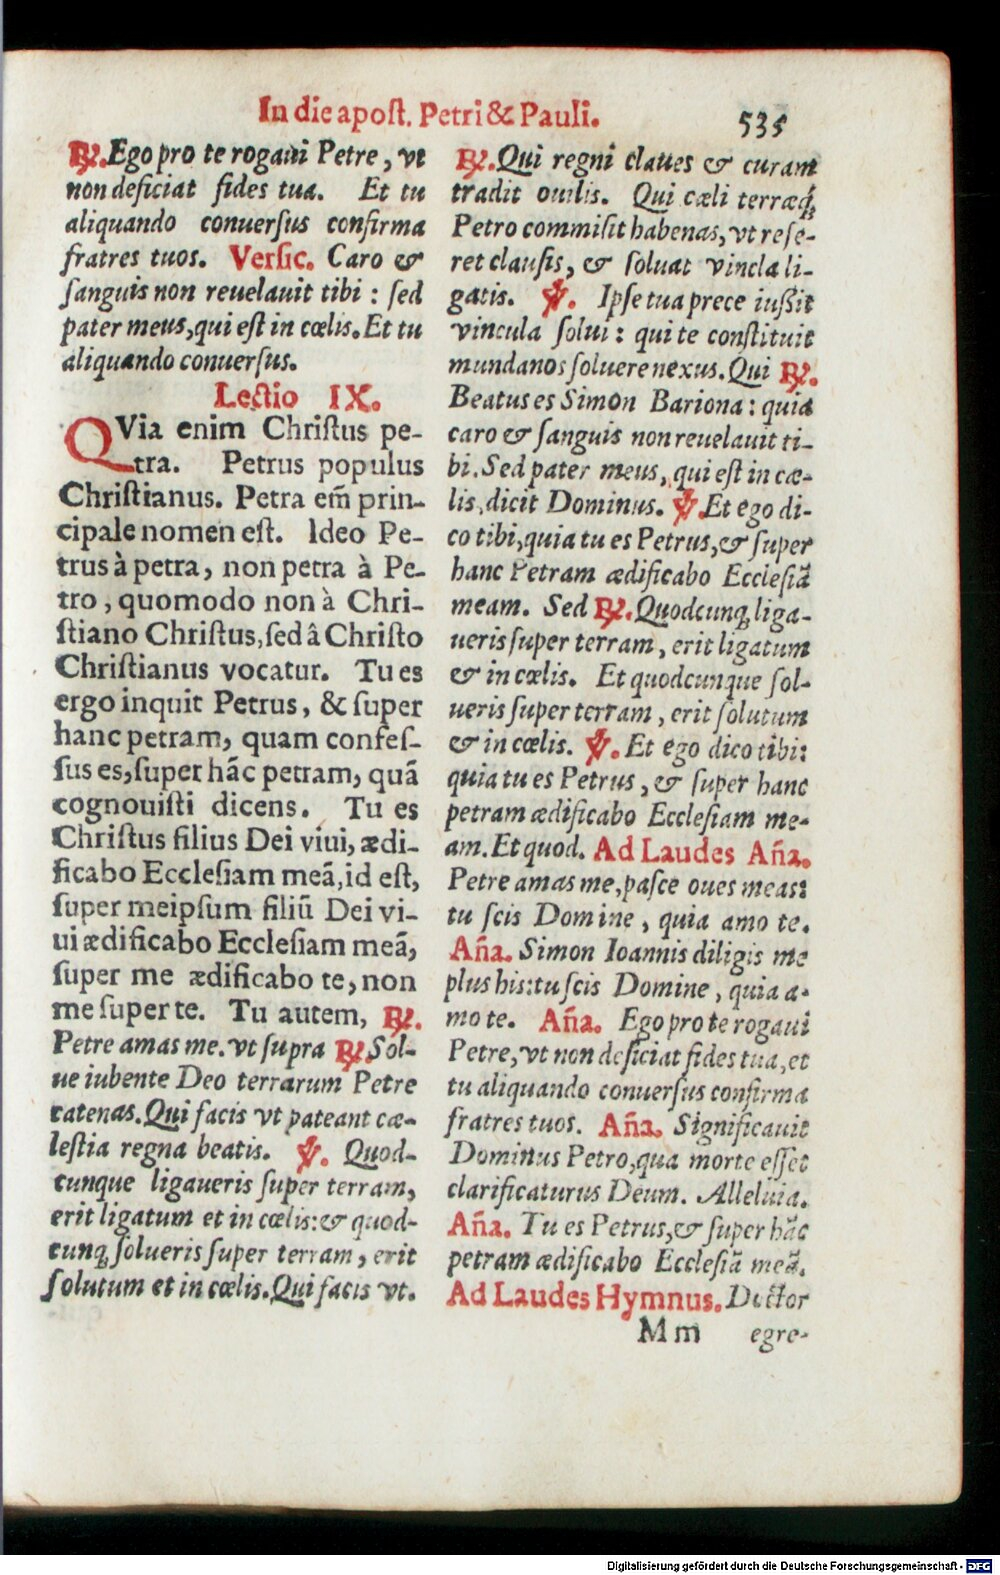 In die apost. Petri & Pauli.
535
℟. Ego pro te rogaui Petre, vt
non deficiat fides tua. Et tu
aliquando conuersus confirma
fratres tuos. Versic. Caro &
sanguis non reuelauit tibi : sed
pater meus, qui est in cœlis. Et tu
aliquando conuersus.
Lectio IX.
QVia enim Christus pe-
tra. Petrus populus
Christianus. Petra em̃ prin-
cipale nomen est. Ideo Pe-
trus à petra, non petra à Pe-
tro, quomodo non à Chri-
stiano Christus, sed â Christo
Christianus vocatur. Tu es
ergo inquit Petrus, & super
hanc petram, quam confes-
sus es, super hãc petram, quã
cognouisti dicens. Tu es
Christus filius Dei viui, ædi-
ficabo Ecclesiam meã, id est,
super meipsum filiũ Dei vi-
ui ædificabo Ecclesiam meã,
super me ædificabo te, non
me super te. Tu autem, ℟.
Petre amas me. vt supra ℟. Sol-
ue iubente Deo terrarum Petre
catenas. Qui facis vt pateant cæ-
lestia regna beatis. ℣. Quod-
cunque ligaueris super terram,
erit ligatum et in cœlis: & quod-
cunq; solueris super terram, erit
solutum et in cœlis. Qui facis vt.
℟. Qui regni claues & curam
tradit ouilis. Qui cæli terræq́;
Petro commisit habenas, vt rese-
ret clausis, & soluat vincla li-
gatis. ℣. Ipse tua prece iussit
vincula solui : qui te constituit
mundanos soluere nexus. Qui ℟.
Beatus es Simon Bariona : quia
caro & sanguis non reuelauit ti-
bi. Sed pater meus, qui est in cæ-
lis, dicit Dominus. ℣. Et ego di-
co tibi, quia tu es Petrus, & super
hanc Petram ædificabo Ecclesiã
meam. Sed ℟. Quodcunq; liga-
ueris super terram, erit ligatum
& in cœlis. Et quodcunque sol-
ueris super terram, erit solutum
& in cœlis. ℣. Et ego dico tibi:
quia tu es Petrus, & super hanc
petram ædificabo Ecclesiam me-
am. Et quod. Ad Laudes Aña.
Petre amas me, pasce oues meas:
tu scis Domine, quia amo te.
Aña. Simon Ioannis diligis me
plus his: tu scis Domine, quia a-
mo te. Aña. Ego pro te rogaui
Petre, vt non deficiat fides tua, et
tu aliquando conuersus confirma
fratres tuos. Aña. Significauit
Dominus Petro, qua morte esset
clarificaturus Deum. Alleluia.
Aña. Tu es Petrus, & super hãc
petram ædificabo Ecclesiã meã.
Ad Laudes Hymnus. Doctor
Mm egre-
Digitalisierung gefördert durch die Deutsche Forschungsgemeinschaft - DFG